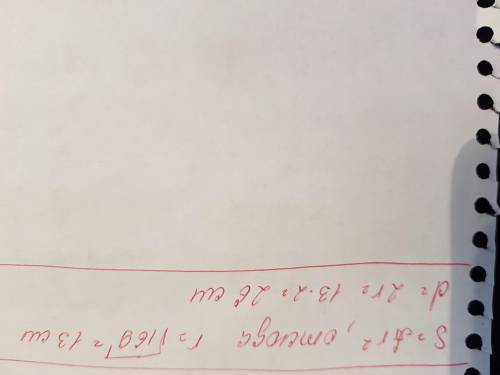 S=πr², отсюда r=√169=13 см
d=2r=13·2=26 см